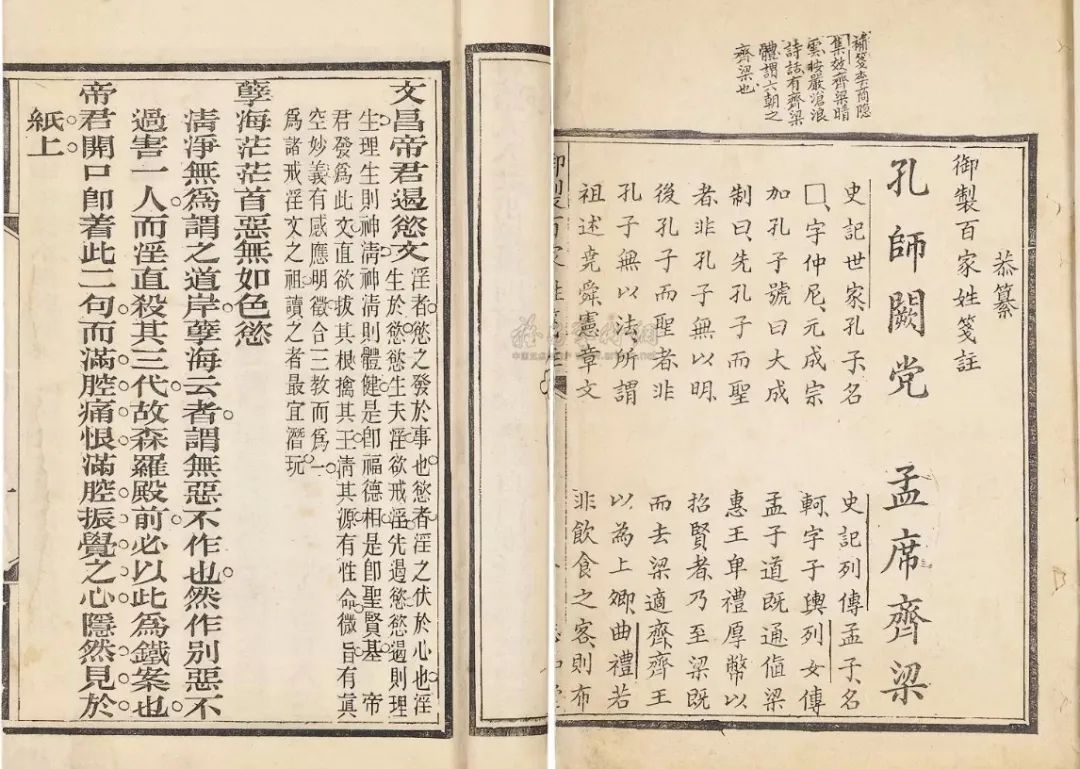 補箋李商隱
集效齊梁晴
雲按嚴滄浪
詩話有齊梁
體謂六朝之
齊梁也
恭纂
御製百家姓箋註
孔師闕党 孟席齊梁
史記世家孔子名
□字仲尼元成宗
加孔子號曰大成
制曰先孔子而聖
者非孔子無以明
後孔子而聖者非
孔子無以法所謂
祖述堯舜憲章文
史記列傳孟子名
軻字子輿列女傳
孟子道既通值梁
惠王卑禮厚幣以
招賢者乃至梁既
而去梁適齊齊王
以為上卿曲禮若
非飲食之客則布
文昌帝君遏慾文
淫者慾之發於事也慾者淫之伏於心也淫
生於慾慾生夫淫欲戒淫先遏慾慾遏則理
生理生則神清神清則體健是卽福德相是卽聖賢基 帝
君發爲此文直欲拔其根擒其王淸其源有性命微旨有眞
空妙義有感應明徵合三教而爲一
爲諸戒淫文之祖讀之者最宜潛玩
孽海茫茫首惡無如色慾
淸淨無爲謂之道岸孽海云者謂無惡不作也然作別惡不
過害一人而淫直殺其三代故森羅殿前必以此爲鐵案也
帝君開口卽著此二句而滿腔痛恨滿腔振覺之心隱然見於
紙上